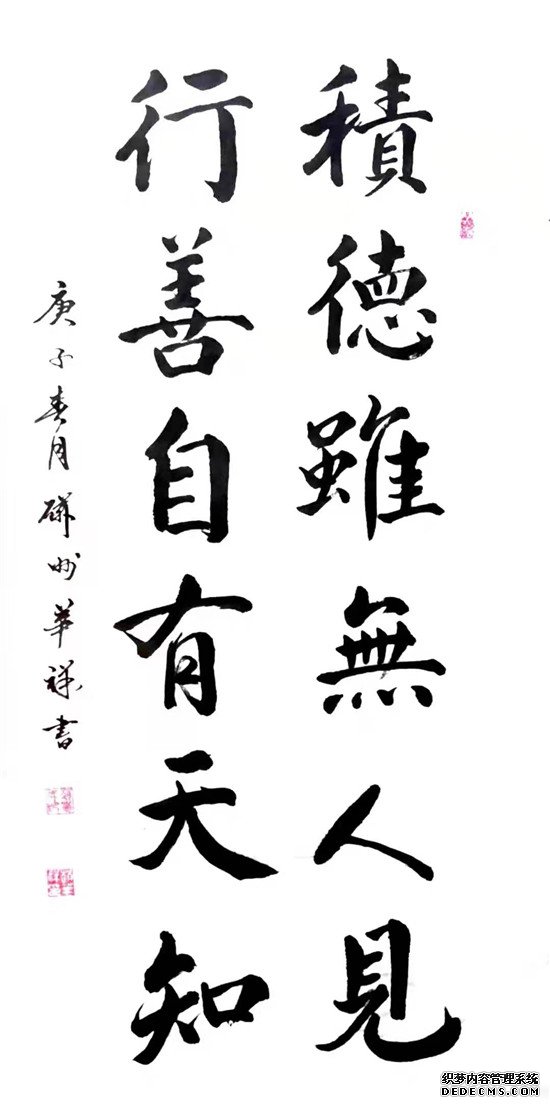 積德雖無人見
行善自有天知
庚子春月州華祥書
织梦内容管理系统
DEDECMS.COM